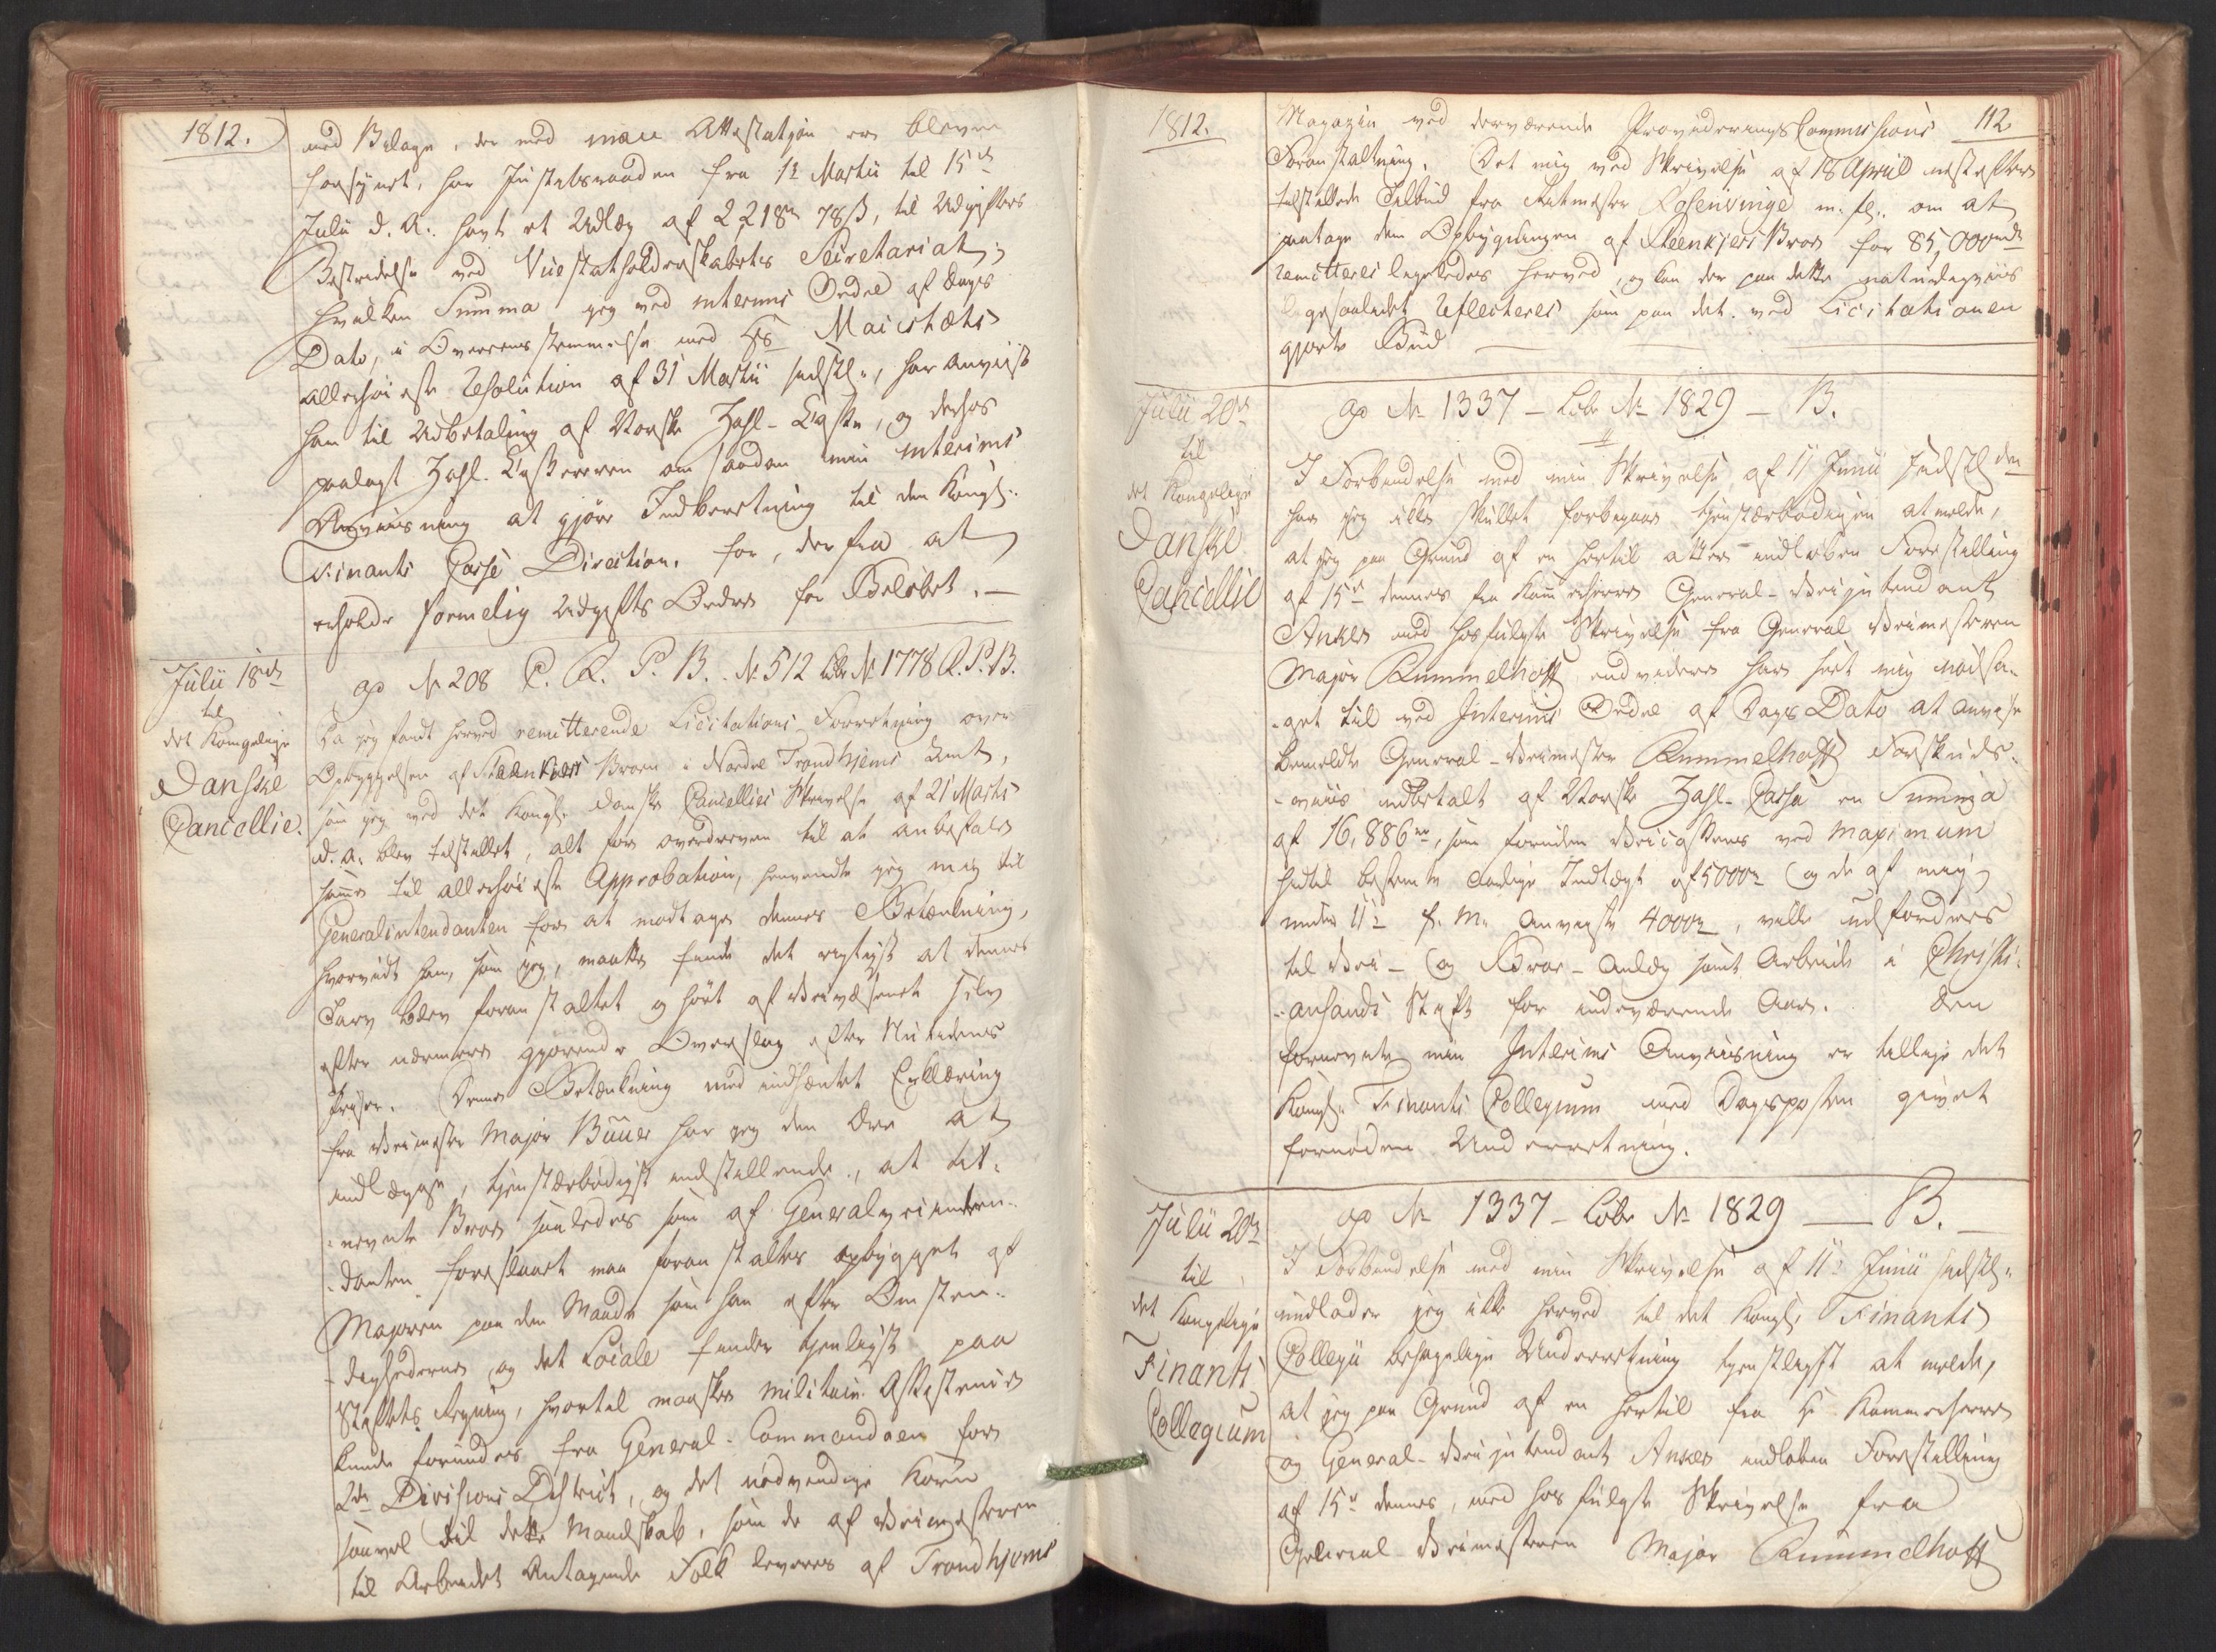 1812.
med Bilage, der med min Attestation er bleven
forsynet, har Justitsraaden fra 1ste Martii til 15de
Julii d. A. havt et Udlæg af 2218rd 78ß, til Udgifters
Bestridelse ved Vicestatholderskabets Secretariat;
hvilken Summa jeg ved interims Ordre af Dags
Dato, i Overensstemmelse med Hs Maiestæts
allerhøieste Resolution af 31 Martii sidstl., har anviist
ham til Udbetaling af Norske Zahl-Casse, og derhos
paalagt Zahl-Casereren om saadan min interims
Anviisning at gjøre Indberetning til den Kongl.
Finants Casse Direction, for, derfra at
erholde formelig Udgifts Ordre for Beløbet. —
Julii 18de
til
det Kongelige
Danske
Cancellie.
ad No 208 C. R. P. B. No 512 Løbe No 1778 R. P. B.
Da jeg fandt herved remitterende Licitations Forretning over
Opbyggelsen af Steenkiærs Broen i Nordre Trondhjems Amt,
som jeg ved det Kongl. danske Cancellies Skrivelse af 21 Martii
d. A. blev tilstillet, alt for overdreven til at anbefale
samme til allerhøieste Approbation, henvendte jeg mig til
Generalintendanten for at modtage dennes Betænkning,
hvorvidt han, som jeg, maatte finde det rigtigst at denne
Tarv blev foranstaltet og ført af Veivæsenet selv
efter nærmere gjørende Overslag efter Nutidens
Priser. Denne Betænkning med indhæntet Erklæring
fra Veimester Major Buuer har jeg den Ære at
indlægge, tjenstærbødigst indstillende, at bi-
nevnte Broe saaledes som af Generalveiinten-
danten foreslaaet maa foranstaltes opbygget af
Majoren paa den Maade som han efter Omsten-
dighederne og det Locale finder tjenligst paa
Stiftets Regning, hvortil maaskee militair Assistence
kunde forundes fra General-Commandoen for
2den Divisions District, og det nødvendige Korn
saavel til dette Mandskab, som de af Veimesteren
til Arbeidet Antagende Folk leveres af Trondhjems
1812.
112
Magazin ved derværende Provideringscommissions
Foranstaltning. Det mig ved Skrivelse af 18 April nestefter
tilstillede Tilbud fra Ritmester Rosenvinge m. fl. om at
paatage dem Opbygningen af Steenkjers Broe for 85,000rd
remitteres ligeledes herved, og kan der paa dette naturligviis
ligesaalidet reflecteres som paa det ved Licitationen
gjorte Bud —
Julii 20de
til
det Kongelige
Danske
Cancellie
ad No 1337 – Løbe No 1829 – B.
I Forbindelse med min Skrivelse af 11 Junii sidstl
har jeg ikke skullet forbigaae tjenstærbødigen at melde,
at jeg paa Grund af en hertil atter indløben Forestilling
af 15de dennes fra Kammerherre General-Veiintendant
Anker med hosfulgte Skrivelse fra General Veimesteren
Major Rummelhoff endvidere har seet mig nødsa-
get til ved Interims Ordre af Dags Dato at anvise
bemeldte General-Veimester Rummelhoff Forskuds-
viis udbetalt af Norske Zahl-Cassa en Summa
af 16,886rd, som foruden Veicassens ved Maximum
hidtil bestemte aarlige Indtægt af 5000rd og de af mig
under 11te f. M. anviiste 4000rd, ville udfordres
til Vei- og Broe-Anlæg samt Arbeide i Christi-
ansands Stift for indeværende Aar. Om
fornevnte min Interims Anviisning er tillige det
Kongl. Finants Collegium med Dagsposten givet
fornøden Underretning.
Julii 20de
til
det Kongelige
Finants
Collegium
ad No 1337 – Løbe No 1829 — B.
I Forbindelse med min Skrivelse af 11te Junii sidstl.
undlader jeg ikke herved til det Kongl. Finants
Collegii behagelige Underretning tjenstligst at melde,
at jeg paa Grund af en hertil fra Hr Kammerherre
og General-Veiintendant Anker indløben Forestilling
af 15de dennes, med hosfulgte Skrivelse fra
General Veimesteren Major Rummelhoff